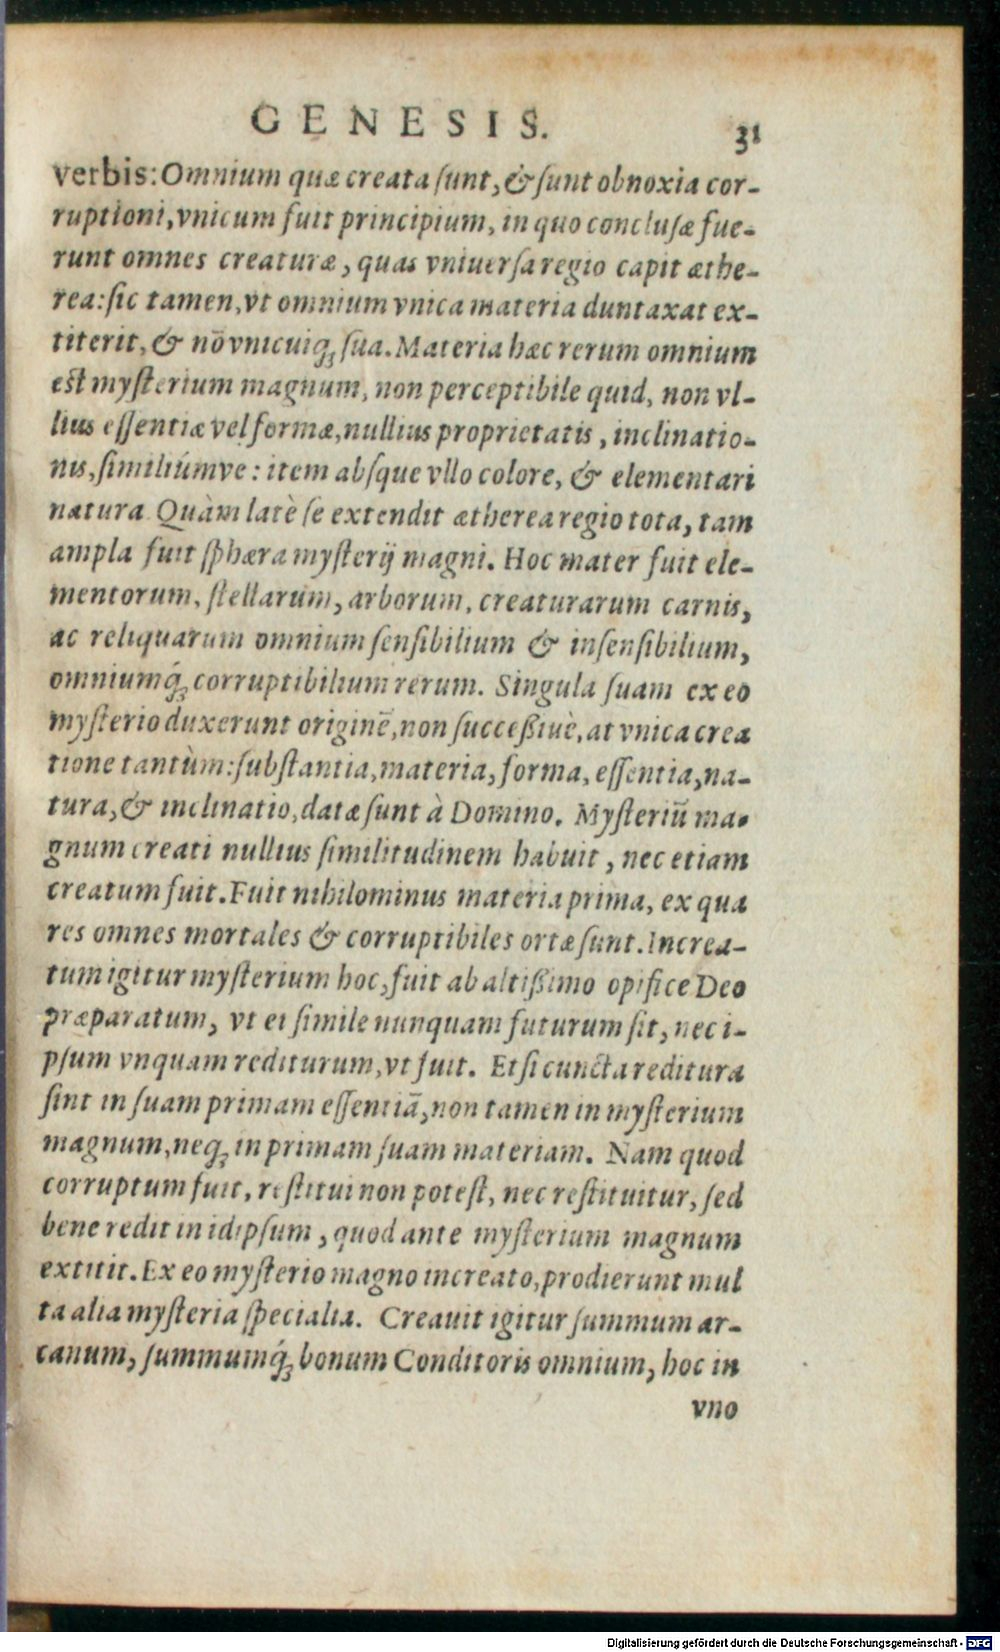 GENESIS. 31
verbis: Omnium quæ creata ſunt, & ſunt obnoxia cor-
ruptioni, vnicum fuit principium, in quo concluſæ fue-
runt omnes creaturæ, quas vniuerſa regio capit æthe-
rea: ſic tamen, vt omnium vnica materia duntaxat ex-
titerit, & nō vnicuiq́; ſua. Materia hæc rerum omnium
eſt myſterium magnum, non perceptibile quid, non vl-
lius eſſentiæ vel formæ, nullius proprietatis, inclinatio-
nis, ſimiliúmve: item abſque vllo colore, & elementari
natura Quàm latè ſe extendit ætherea regio tota, tam
ampla fuit ſphæra myſterij magni. Hoc mater fuit ele-
mentorum, ſtellarum, arborum, creaturarum carnis,
ac reliquarum omnium ſenſibilium & inſenſibilium,
omniumq́; corruptibilium rerum. Singula ſuam ex eo
myſterio duxerunt originē, non ſucceßiuè, at vnica crea
tione tantùm: ſubſtantia, materia, forma, eſſentia, na-
tura, & inclinatio, datæ ſunt à Domino. Myſteriū ma-
gnum creati nullius ſimilitudinem habuit, nec etiam
creatum fuit. Fuit nihilominus materia prima, ex qua
res omnes mortales & corruptibiles ortæ ſunt. Increa-
tum igitur myſterium hoc, fuit ab altißimo opifice Deo
præparatum, vt ei ſimile nunquam futurum ſit, nec i-
pſum vnquam rediturum, vt fuit. Etſi cuncta reditura
ſint in ſuam primam eſſentiā, non tamen in myſterium
magnum, neq; in primam ſuam materiam. Nam quod
corruptum fuit, reſtitui non poteſt, nec reſtituitur, ſed
bene redit in idipſum, quod ante myſterium magnum
extitit. Ex eo myſterio magno increato, prodierunt mul
ta alia myſteria ſpecialia. Creauit igitur ſummum ar-
canum, ſummumq́; bonum Conditoris omnium, hoc in
vno
Digitalisierung gefördert durch die Deutsche Forschungsgemeinschaft - DFG